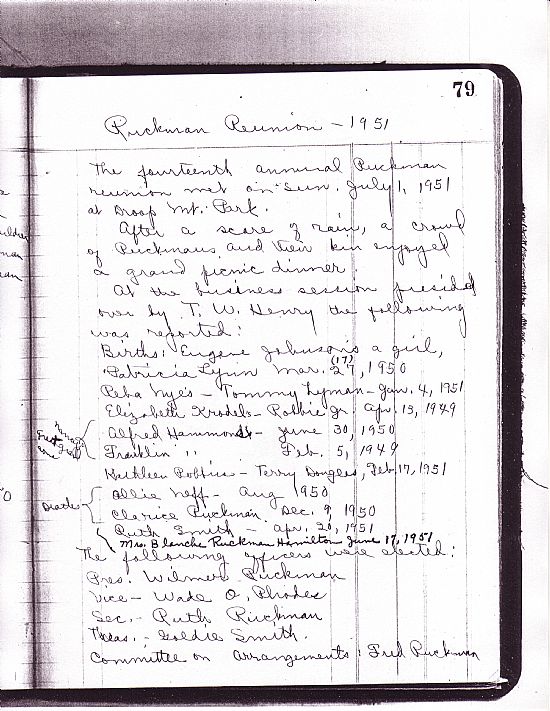 79
Ruckman Reunion - 1951
The fourteenth annual Ruckman
reunion met on Sun. July 1, 1951
at Droop Mt. Park.
After a scare of rain, a crowd
of Ruckmans and their kin enjoyed
a grand picnic dinner.
At the business session presided
over by T. W. Henry the following
was reported:
Births: Eugene Johnson's a girl,
(17)
Patricia Lynn Mar. 27, 1950
Reba Nye's - Tommy Lyman - Jan. 4, 1951
Elizabeth Krodel's - Robbie Jr. Apr. 13, 1949
Alfred Hammonds - June 30, 1950
Franklin " Feb. 5, 1949
Kathleen Robbins - Terry Douglas, Feb. 17, 1951
Deaths
Ollie Neff - Aug 1950
Clarice Ruckman Dec. 9, 1950
Ruth Smith - Apr. 20, 1951
Mrs. Blanche Ruckman Hamilton June 17, 1951
The following officers were elected:
Pres. Wilmer Ruckman
Vice - Wade O. Rhodes
Sec. - Ruth Ruckman
Treas. - Goldie Smith.
Committee on Arrangements: Fred Ruckman